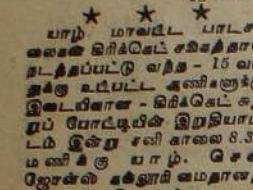 ★ ★ ★
யாழ் மாவட்ட பாடசா
லைகள் கிரிக்கெட் சங்கத்தா
நடத்தப்பட்டு வந்த - 15 வ
துக்கு உட்பட்ட அணிகளுக்
இடையிலான - கிரிக்கெட் சு
றுப் போட்டியின் இறுதியாட்
டம் இன்று சனி காலை 8.3
மணிக்கு யாழ். சென்
ஜோன்ஸ் கல்லூரி மைதான